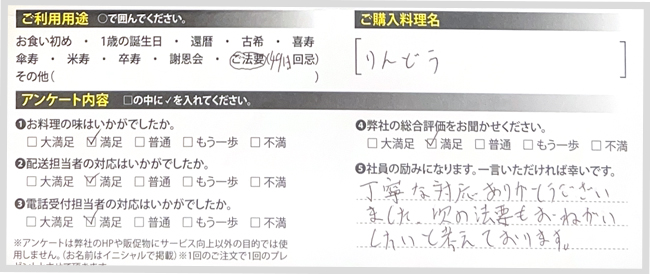 ご利用用途 ○で囲んでください。
お食い初め ・ 1歳の誕生日 ・ 還暦 ・ 古希 ・ 喜寿
傘寿 ・ 米寿 ・ 卒寿 ・ 謝恩会 ・ ご法要(49日回忌)
その他( )
アンケート内容 □の中に✓を入れてください。
❶お料理の味はいかがでしたか。
□大満足 ☑満足 □普通 □もう一歩 □不満
❷配送担当者の対応はいかがでしたか。
□大満足 ☑満足 □普通 □もう一歩 □不満
❸電話受付担当者の対応はいかがでしたか。
□大満足 ☑満足 □普通 □もう一歩 □不満
※アンケートは弊社のHPや販促物にサービス向上以外の目的では使
用しません。(お名前はイニシャルで掲載) ※1回のご注文で1回のプレ
ご購入料理名
りんどう
❹弊社の総合評価をお聞かせください。
□大満足 ☑満足 □普通 □もう一歩 □不満
❺社員の励みになります。一言いただければ幸いです。
丁寧な対応ありがとうござい
ました、次の法要もおねがい
したいと考えております。